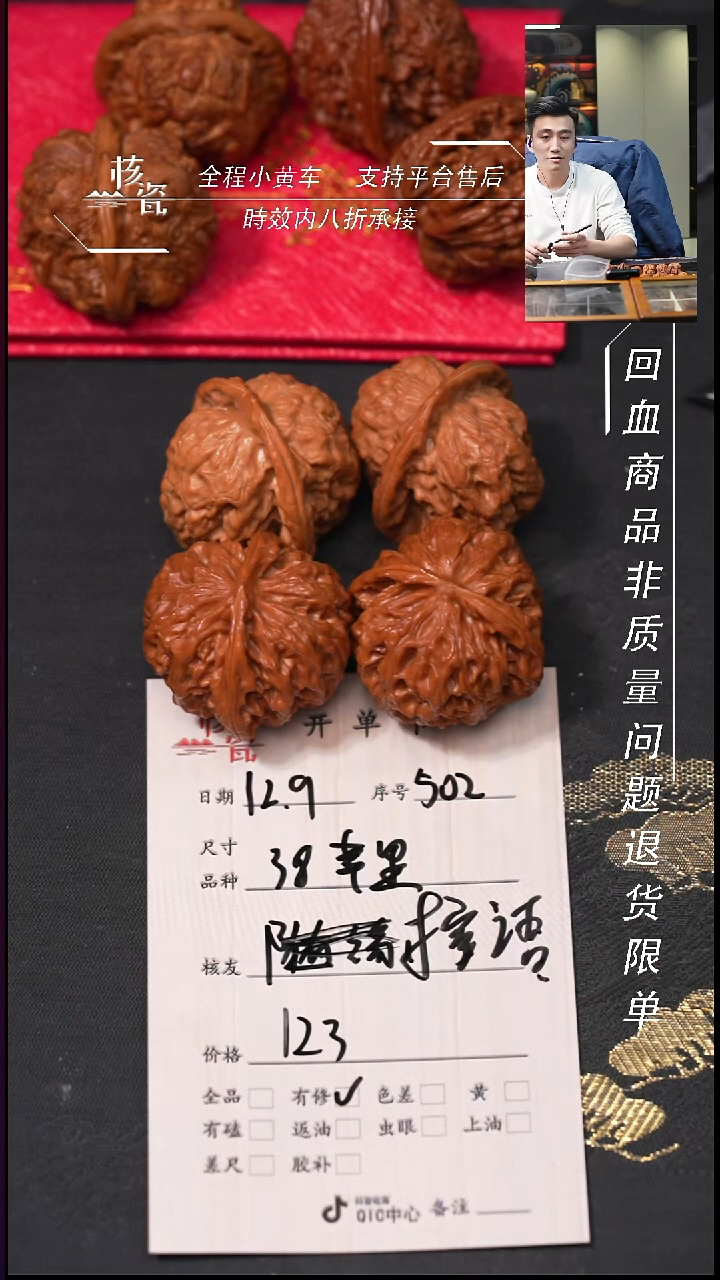 核瓷
全程小黄车 支持平台售后
時效内八折承接
回血商品非质量问题退货限单
核瓷
开单
日期 12.9 序号 502
尺寸
品种 38
核友
价格 123
全品 有修 ✓ 色差 黄
有磕 返油 虫眼 上油
差尺 胶补
QIC中心 备注